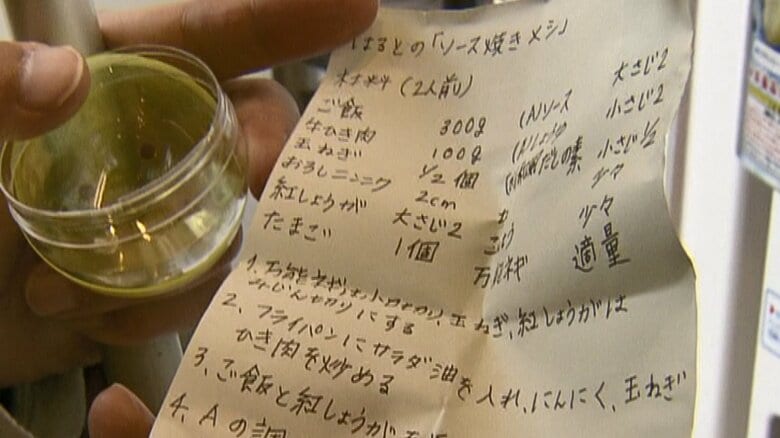 はるとの「ソース焼きメシ」
材料(2人前)
ご飯 300g
牛ひき肉 100g
玉ねぎ 1/2個
おろしニンニク 2cm
紅しょうが 大さじ2
たまご 1個
(A)ソース 大さじ2
小さじ2
だしの素 小さじ1/2
少々
こしょう 少々
万能ネギ 適量
1. 万能ネギを小口切り、玉ねぎ、紅しょうがは
みじん切りにする
2. フライパンにサラダ油を入れ、にんにく、玉ねぎ
ひき肉を炒める
3. ご飯と紅しょうがを
4. Aの調